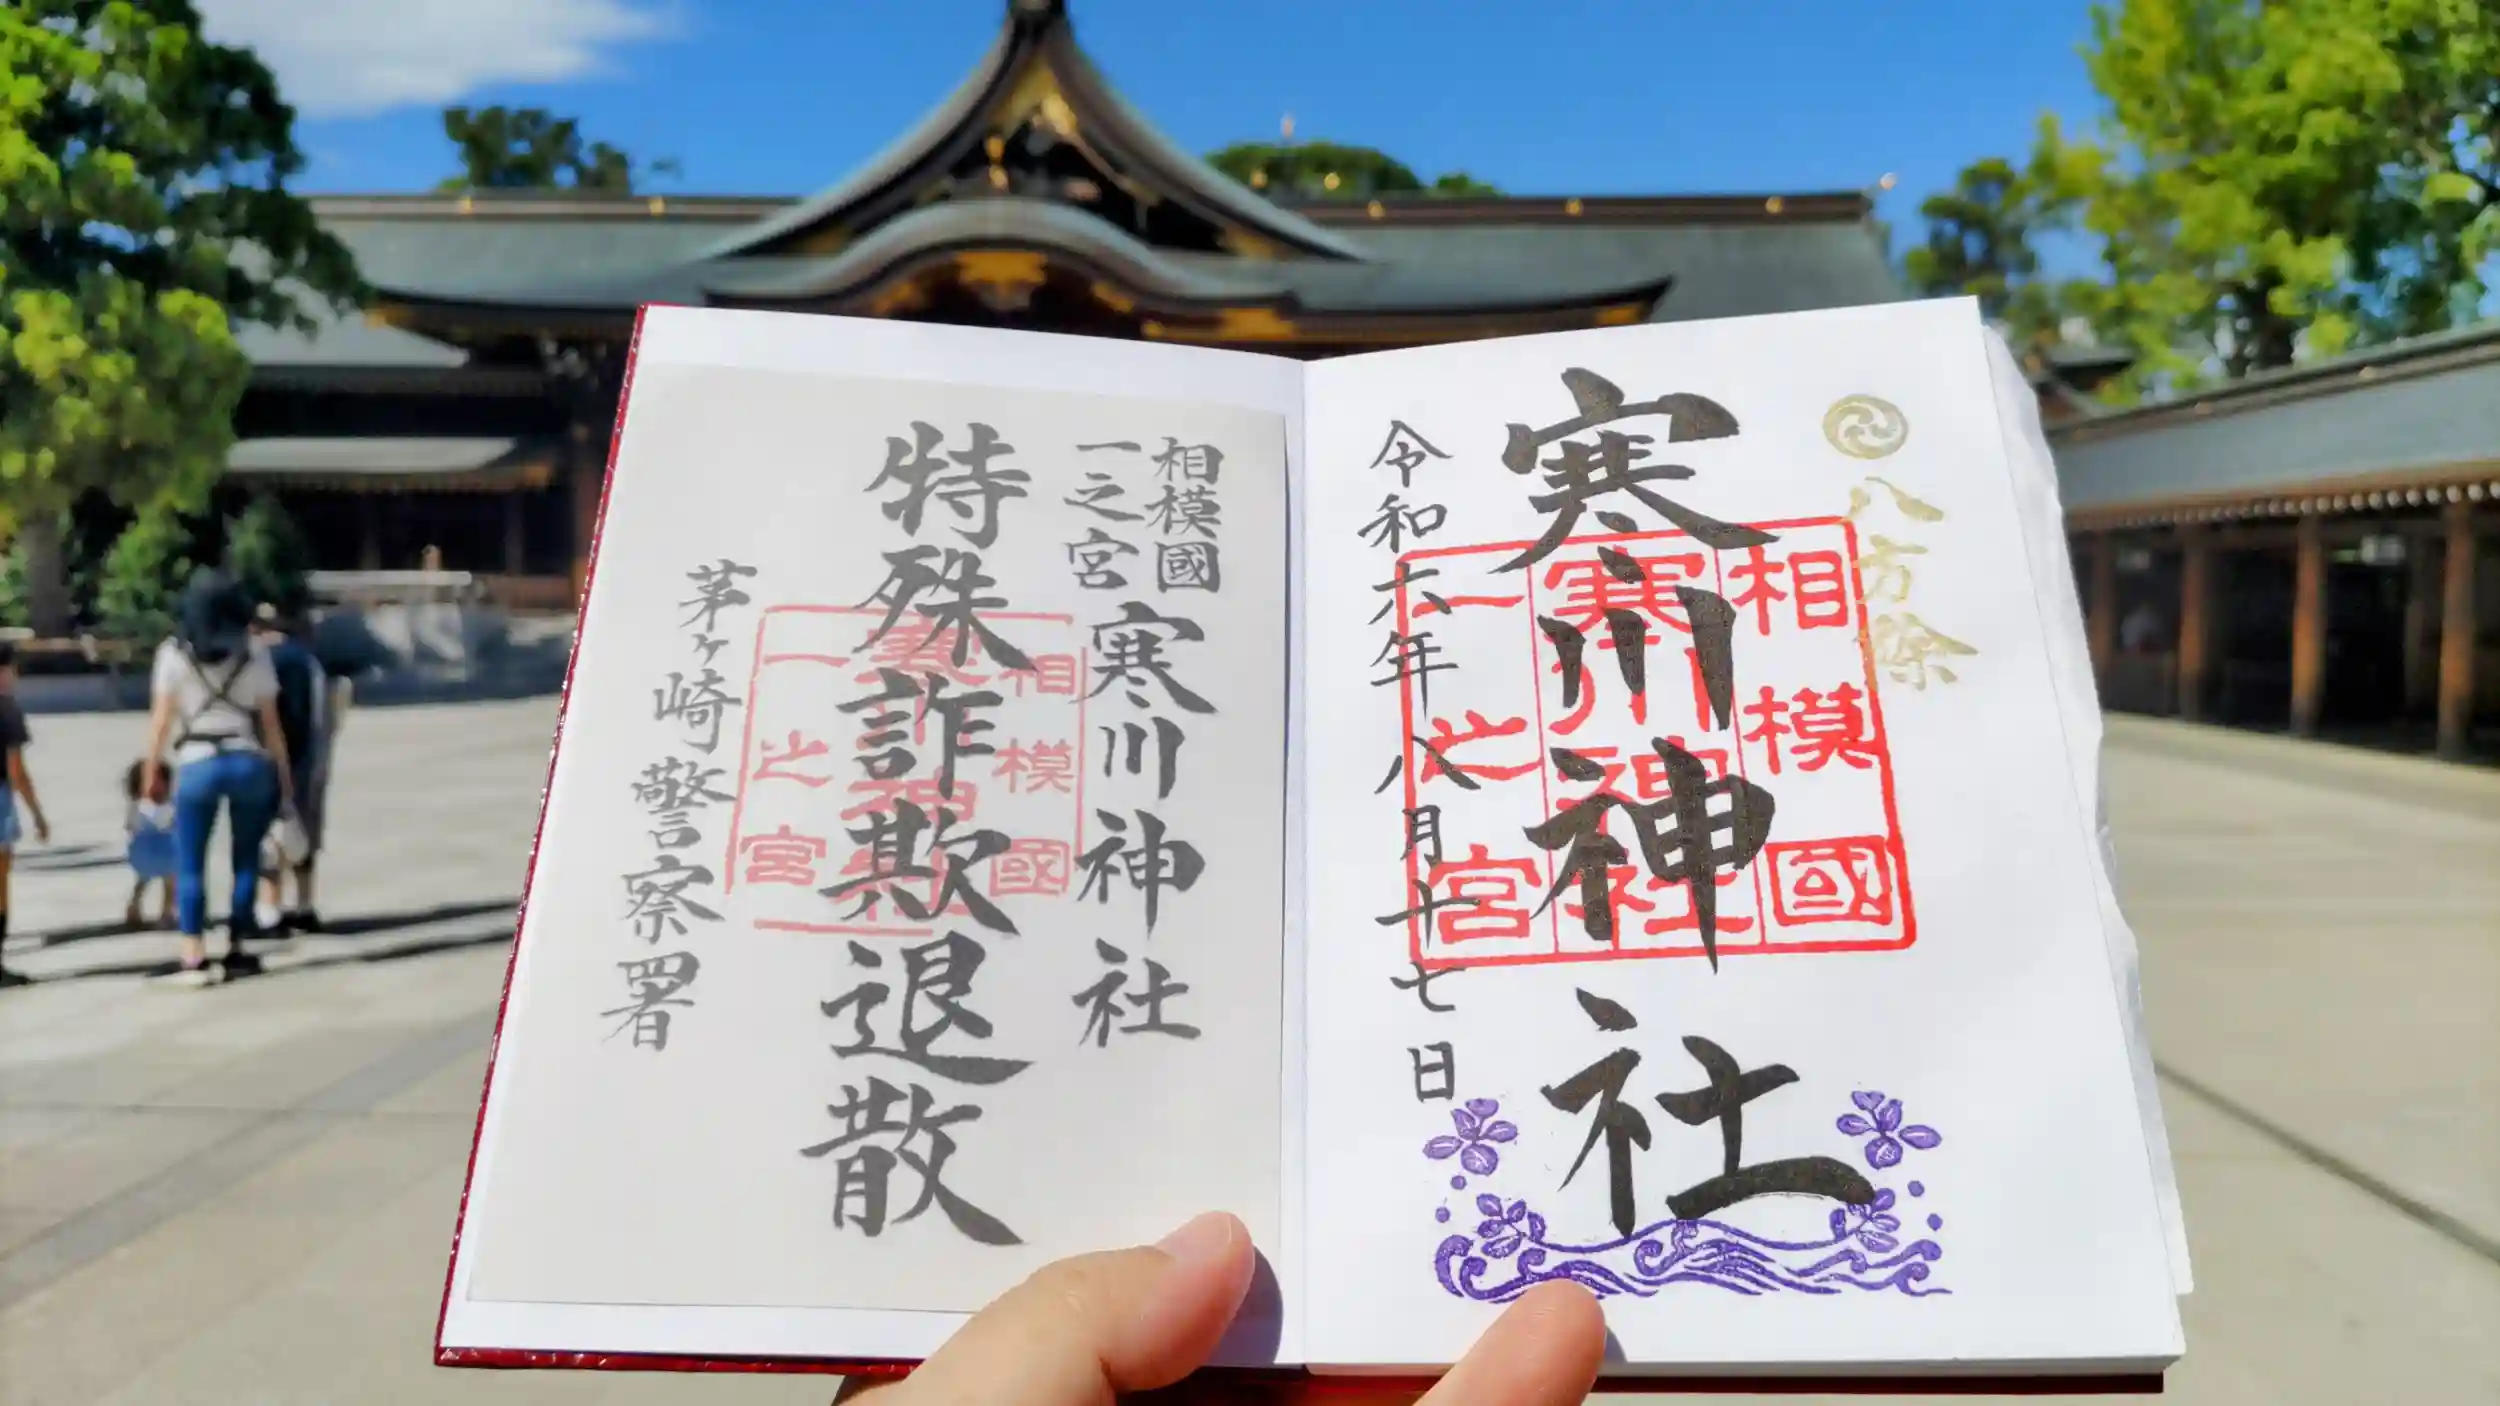 八方除
寒川神社
相模國
寒川神社
一之宮
令和六年八月十七日
相模國
一之宮
寒川神社
特殊詐欺退散
相模國
寒川神社
一之宮
茅ヶ崎警察署